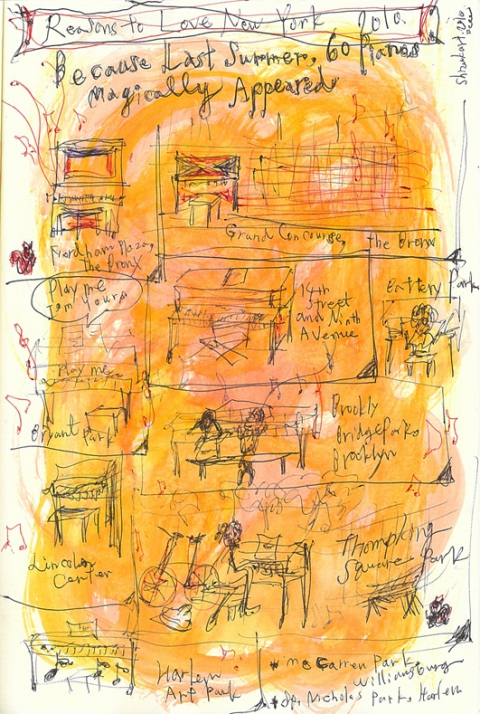 Reasons to Love New York 2010
Because Last Summer, 60 Pianos
Magically Appeared
Fordham Plaza,
The Bronx
Grand Concourse, The Bronx
Play me
I'm Yours
14th
Street
and Ninth
Avenue
Battery Park
Play me
Bryant Park
Brookly
Bridge Park
Brooklyn
Lincoln
Center
Thompkins
Square Park
Harlem
Art Park
McCarren Park
Williamsburg
St. Nicholas Park, Harlem